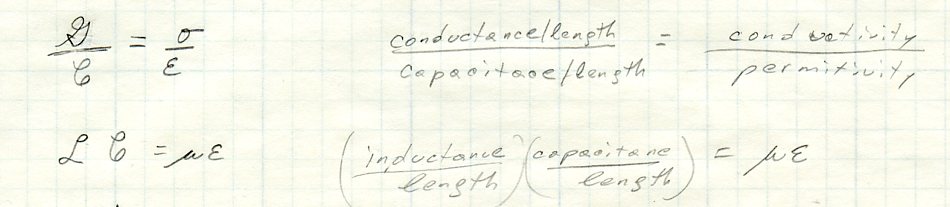 𝒢/𝒞 = σ/ε conductance/length / capacitace/length = conductivity / permitivity
ℒ 𝒞 = με (inductance / length) (capacitane / length) = με